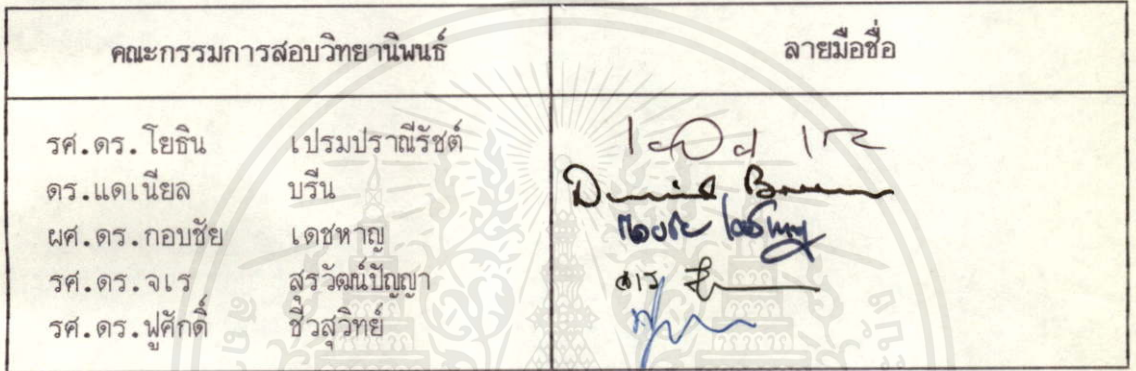 คณะกรรมการสอบวิทยานิพนธ์ ลายมือชื่อ
รศ.ดร.โยธิน เปรมปราณีรัชต์
ดร.แดเนียล บรีน
ผศ.ดร.กอบชัย เดชหาญ
รศ.ดร.จเร สุรวัฒน์ปัญญา
รศ.ดร.ฟูศักดิ์ ชีวสุวิทย์